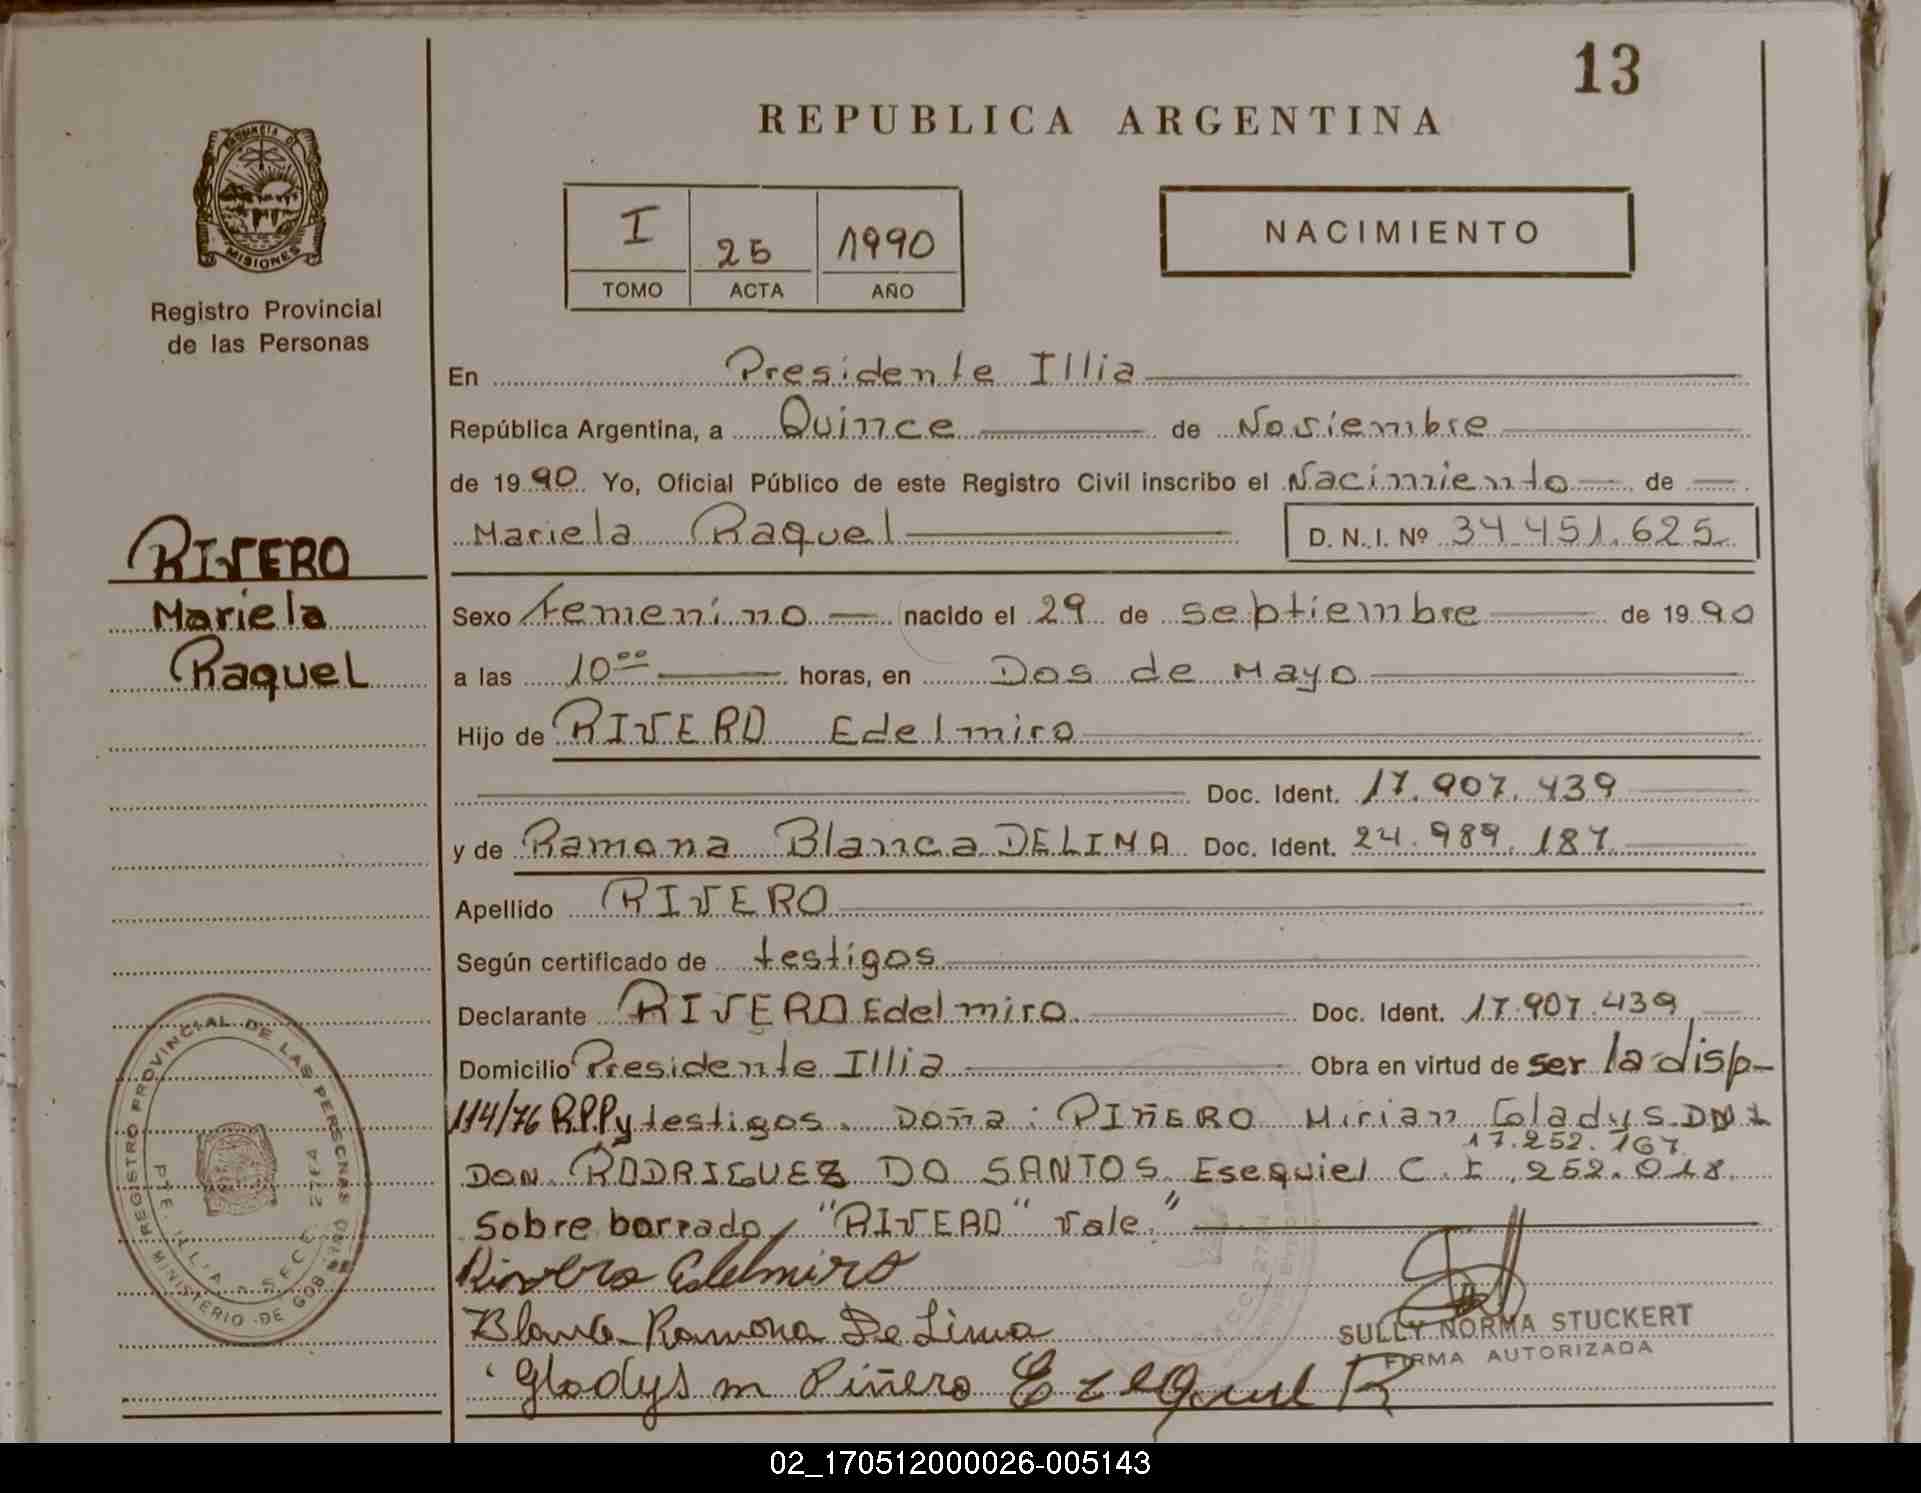 13
REPUBLICA ARGENTINA
PROVINCIA D
MISIONES
Registro Provincial
de las Personas
I 25 1990
TOMO ACTA AÑO
NACIMIENTO
En Presidente Illia
República Argentina, a Quince de Noviembre
de 1990 Yo, Oficial Público de este Registro Civil inscribo el Nacimiento de
Mariela Raquel D. N. I. Nº 34.451.625
RIVERO
Mariela
Raquel
Sexo femenino nacido el 29 de septiembre de 1990
a las 10 00 horas, en Dos de Mayo
Hijo de RIVERO Edelmiro
Doc. Ident. 17.907.439
y de Ramona Blanca DELIMA Doc. Ident. 24.989.187
Apellido RIVERO
Según certificado de testigos
Declarante RIVERO Edelmiro Doc. Ident. 17.907.439
Domicilio Presidente Illia Obra en virtud de ser la disp-
114/76 R.P.P y testigos. Doña: PIÑERO Mirian Gladys DNI
17.252.767
Don RODRIGUEZ DO SANTOS Esequiel C.I. 252.018
Sobre borrado, "RIVERO" vale."
Rivero Edelmiro
Blanca Ramona De Lima
Gladys m Piñero Ezequiel R
SULLY NORMA STUCKERT
FIRMA AUTORIZADA
REGISTRO PROVINCIAL DE LAS PERSONAS
MINISTERIO DE GOB
PTE. ILLIA - SECC. 2764
02_170512000026-005143